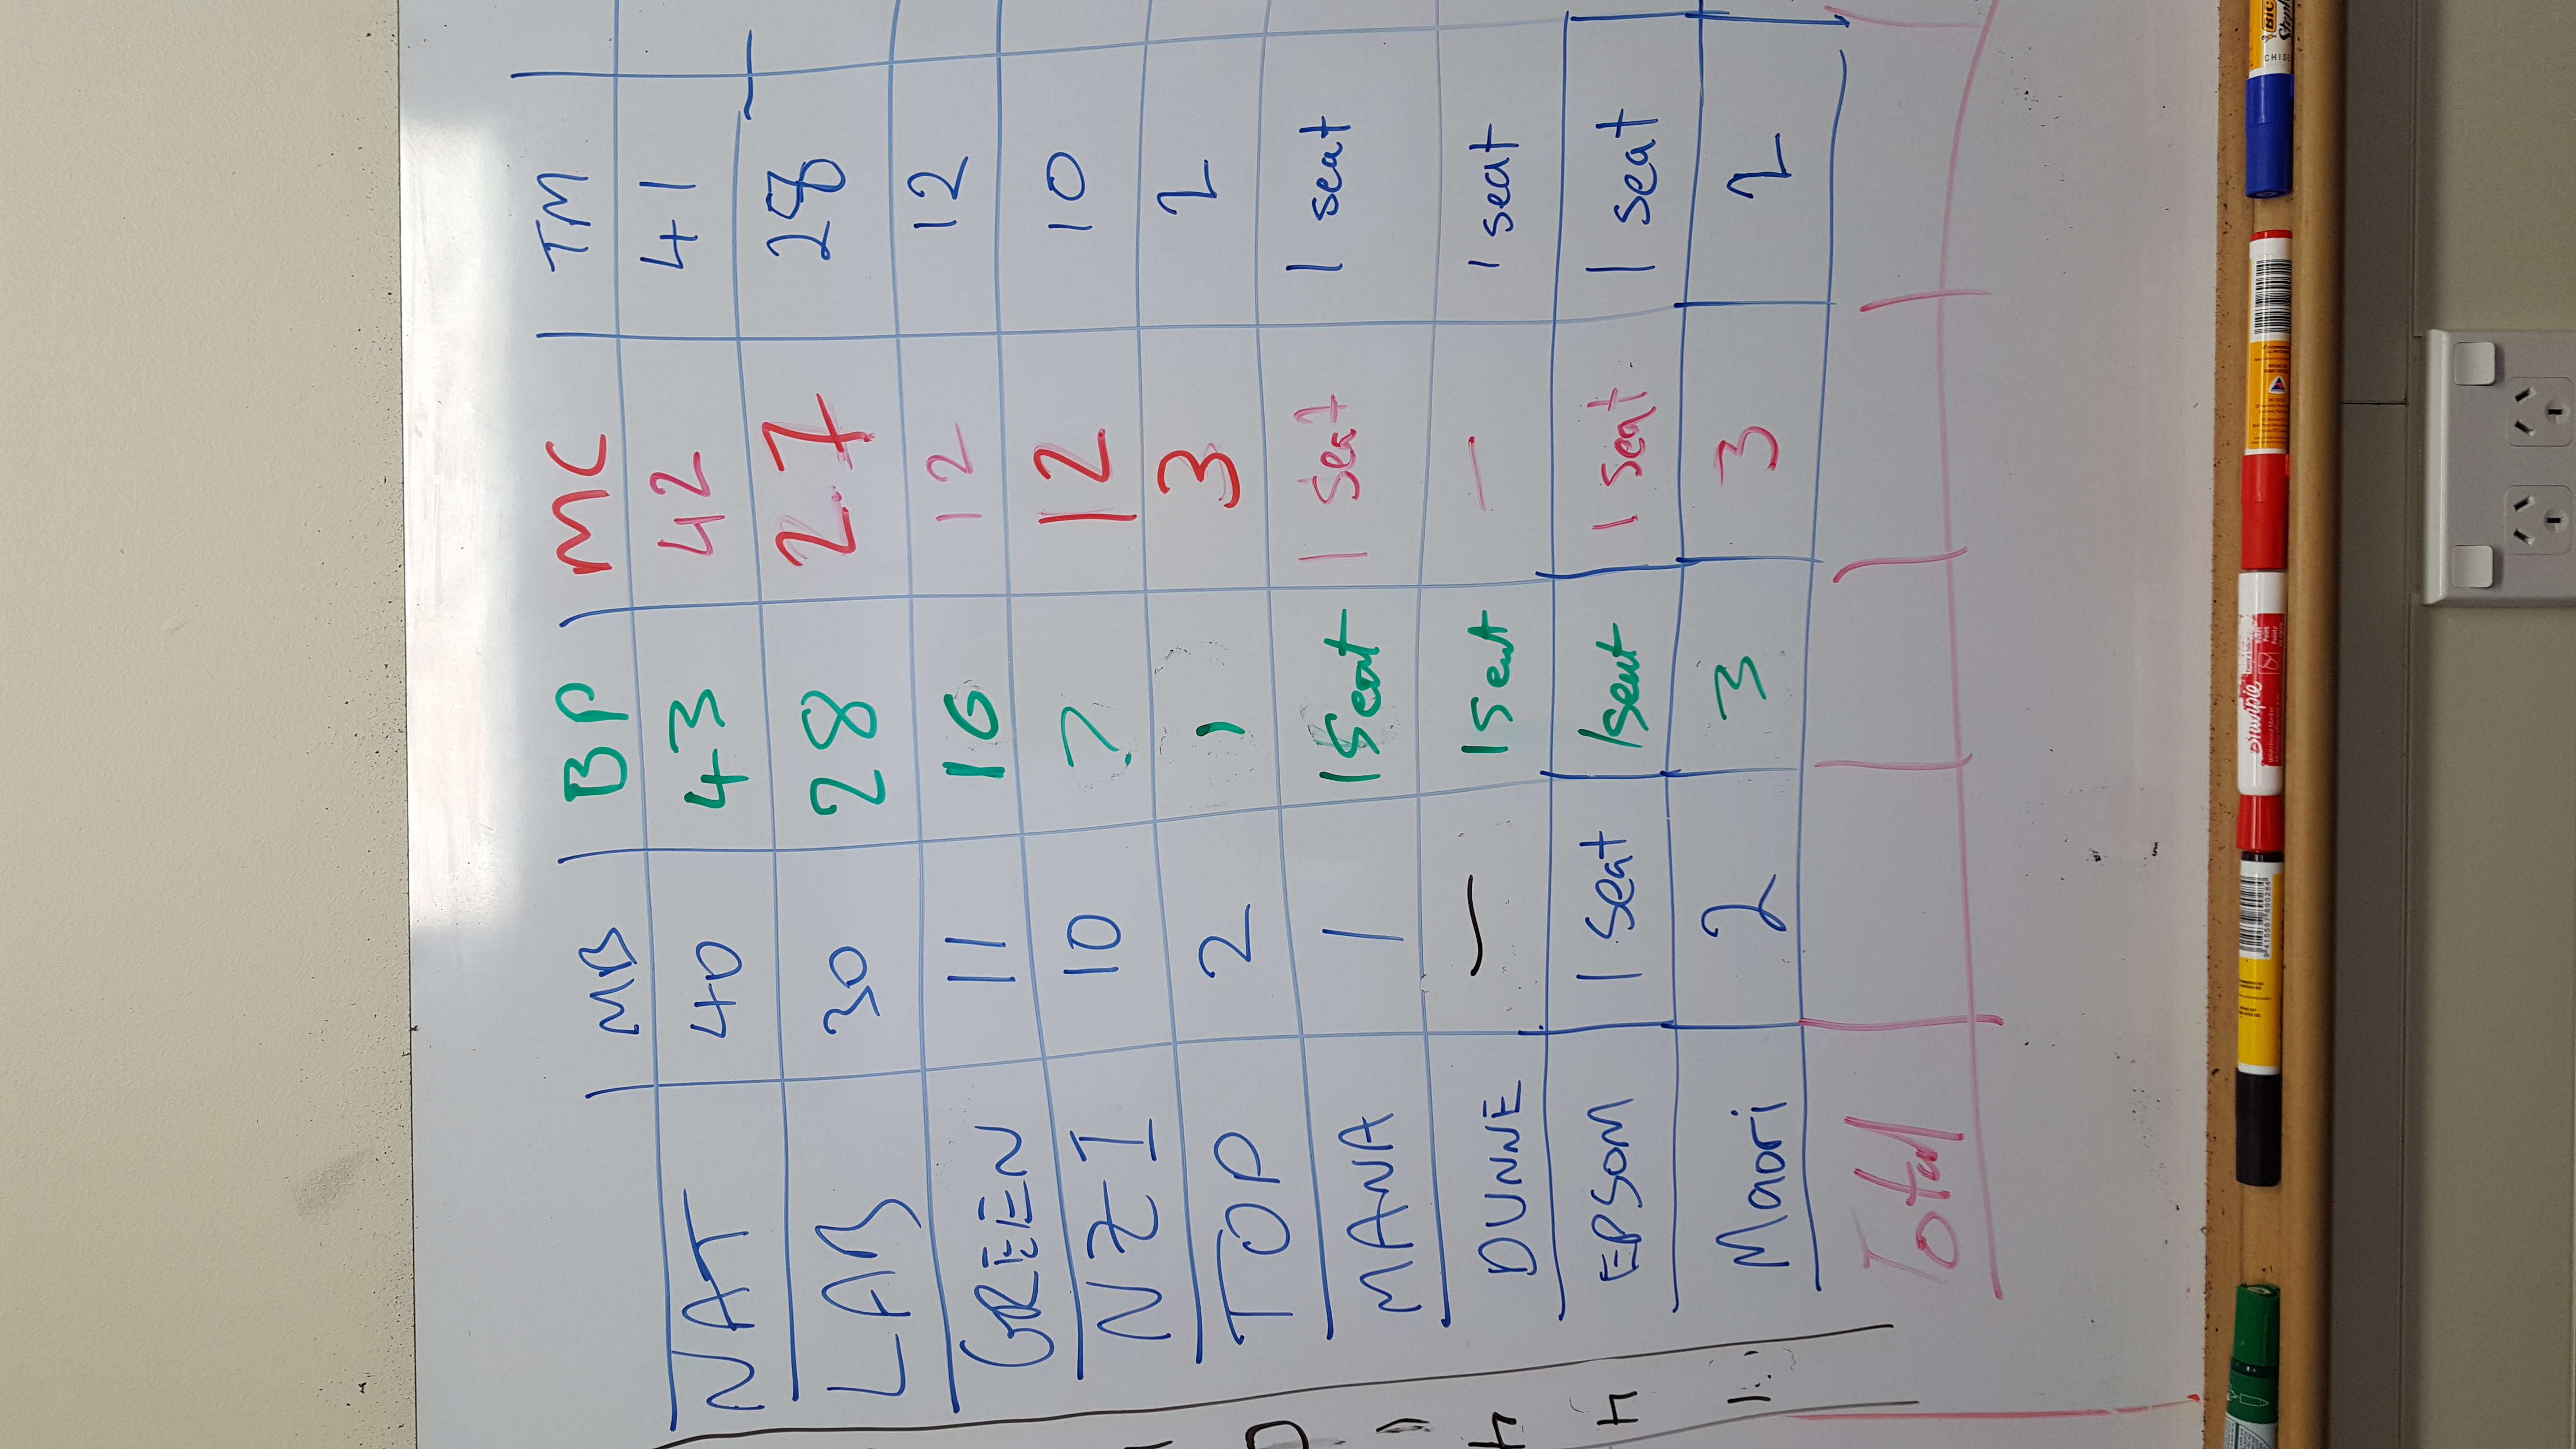 MB BP MC TM
NAT 40 43 42 41
LAB 30 28 27 28
GREEN 11 10 12 12
NZI 10 ? 12 10
TOP 2 1 3 2
MANA 1 1 Seat 1 Seat 1 seat
DUNNE — 1 Seat — 1 seat
EPSOM 1 Seat 1 seat 1 Seat 1 seat
Maori 2 3 3 2
Total
9415567890284
Sharpie
BIC